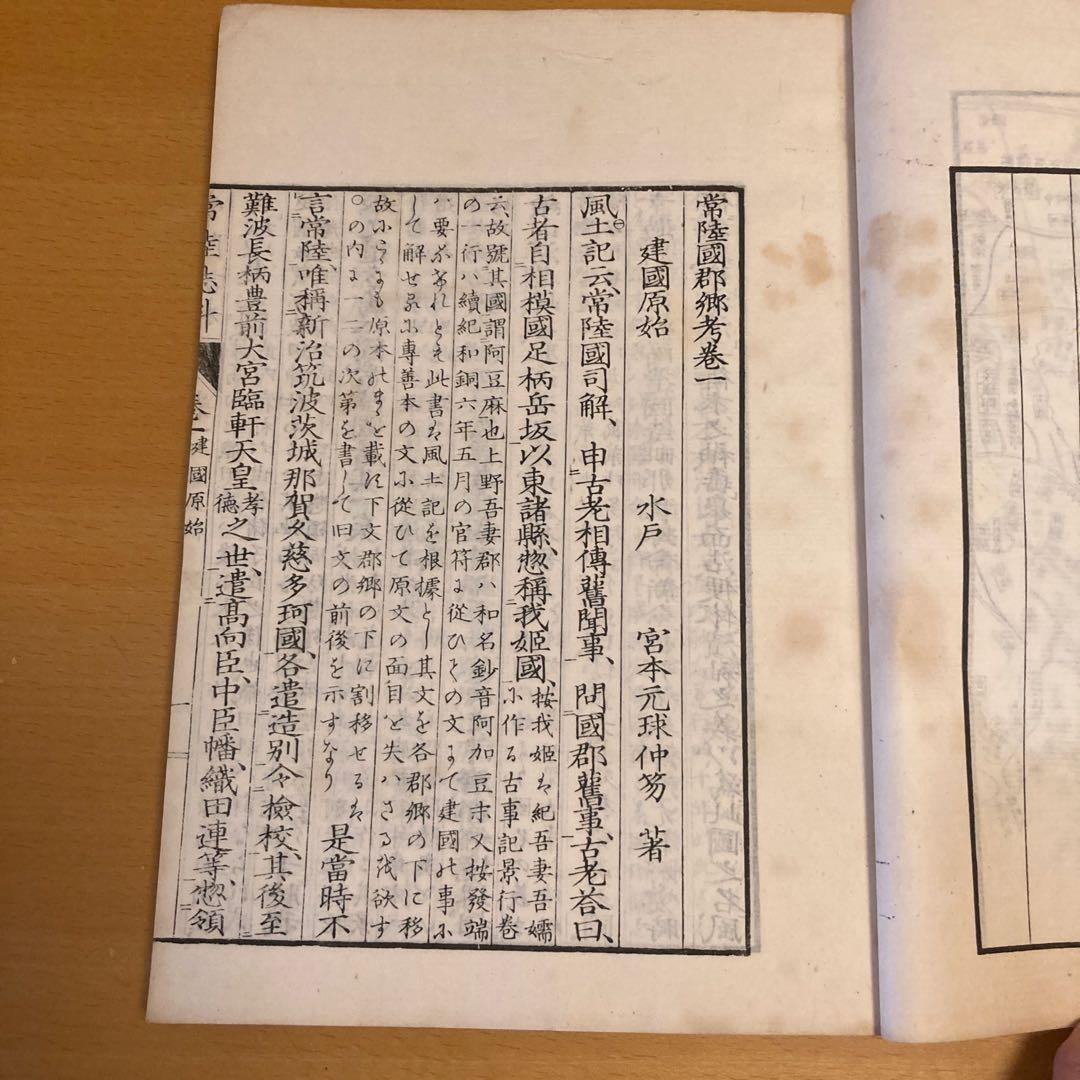 常陸國郡郷考巻一
建國原始　水戸　宮本元球仲笏　著
風土記云、常陸國司解、申古老相傳舊聞事、問國郡舊事、古老荅曰、
古者自相模國足柄岳坂以東諸縣、惣稱我姫國、按我姫ハ紀吾妻吾嬬
ニ作る古事記景行巻
云故號其國謂阿豆麻也上野吾妻郡ハ和名鈔音阿加豆末又按發端
の一行ハ續紀和銅六年五月の官符に從ひその文にて建國の事に
ハ要なけれとも此書ハ風土記を根據とし其文を各郡郷の下に移
して解せるに專善本の文に從ひて原文の面目を失ハさる我欲す
故にこゝにも原本のまゝを載に下文郡郷の下に割移せるハ
〇の内に一二の次第を書して旧文の前後を示すなり
是當時不
言常陸、唯稱新治筑波茨城那賀久慈多珂國、各遣造別令檢校、其後至
難波長柄豊前大宮臨軒天皇孝德之世、遣髙向臣、中臣幡織田連等、惣領
常陸誌料
巻一 建國原始
一